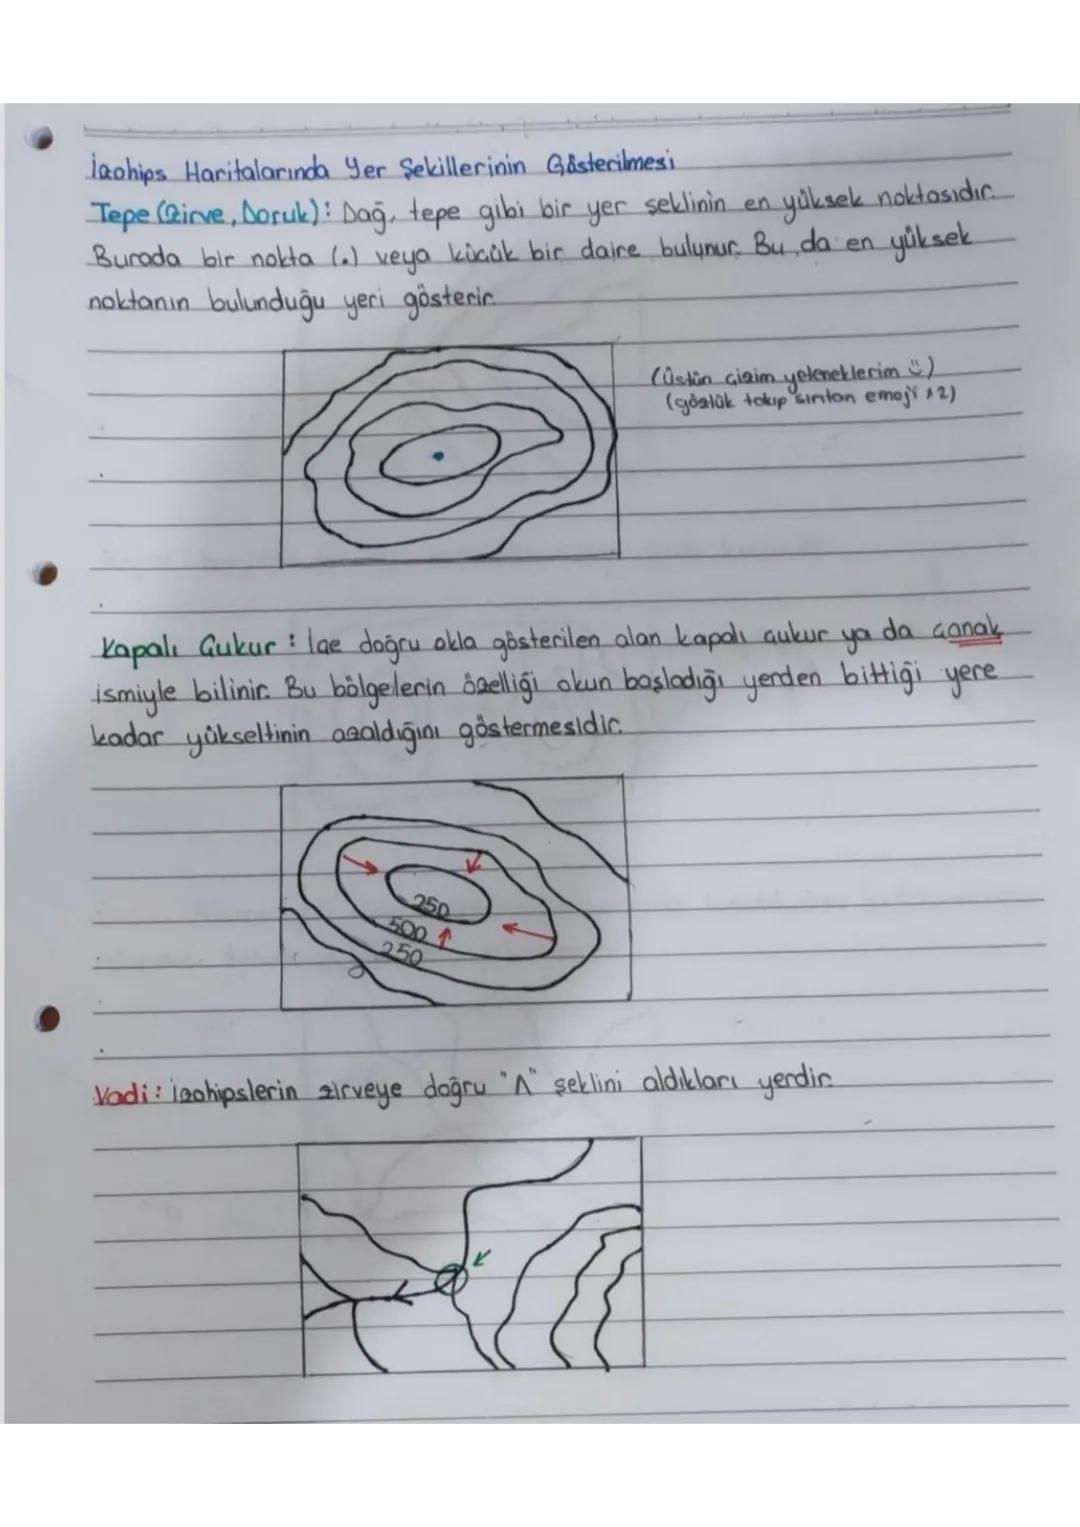 İzohips Haritalarında Yer Şekillerinin Gösterilmesi
Tepe (Zirve, Doruk): Dağ, tepe gibi bir yer şeklinin en yüksek noktasıdır.
Burada bir nokta (.) veya küçük bir daire bulunur. Bu da en yüksek
noktanın bulunduğu yeri gösterir.
(üstün çizim yeteneklerim ü)
(gözlük takıp sırıtan emoji x2)
Kapalı Çukur : İçe doğru okla gösterilen alan kapalı çukur ya da çanak
ismiyle bilinir. Bu bölgelerin özelliği okun başladığı yerden bittiği yere
kadar yükseltinin azaldığını göstermesidir.
250
500
250
Vadi : İzohipslerin zirveye doğru "Λ" şeklini aldıkları yerdir.